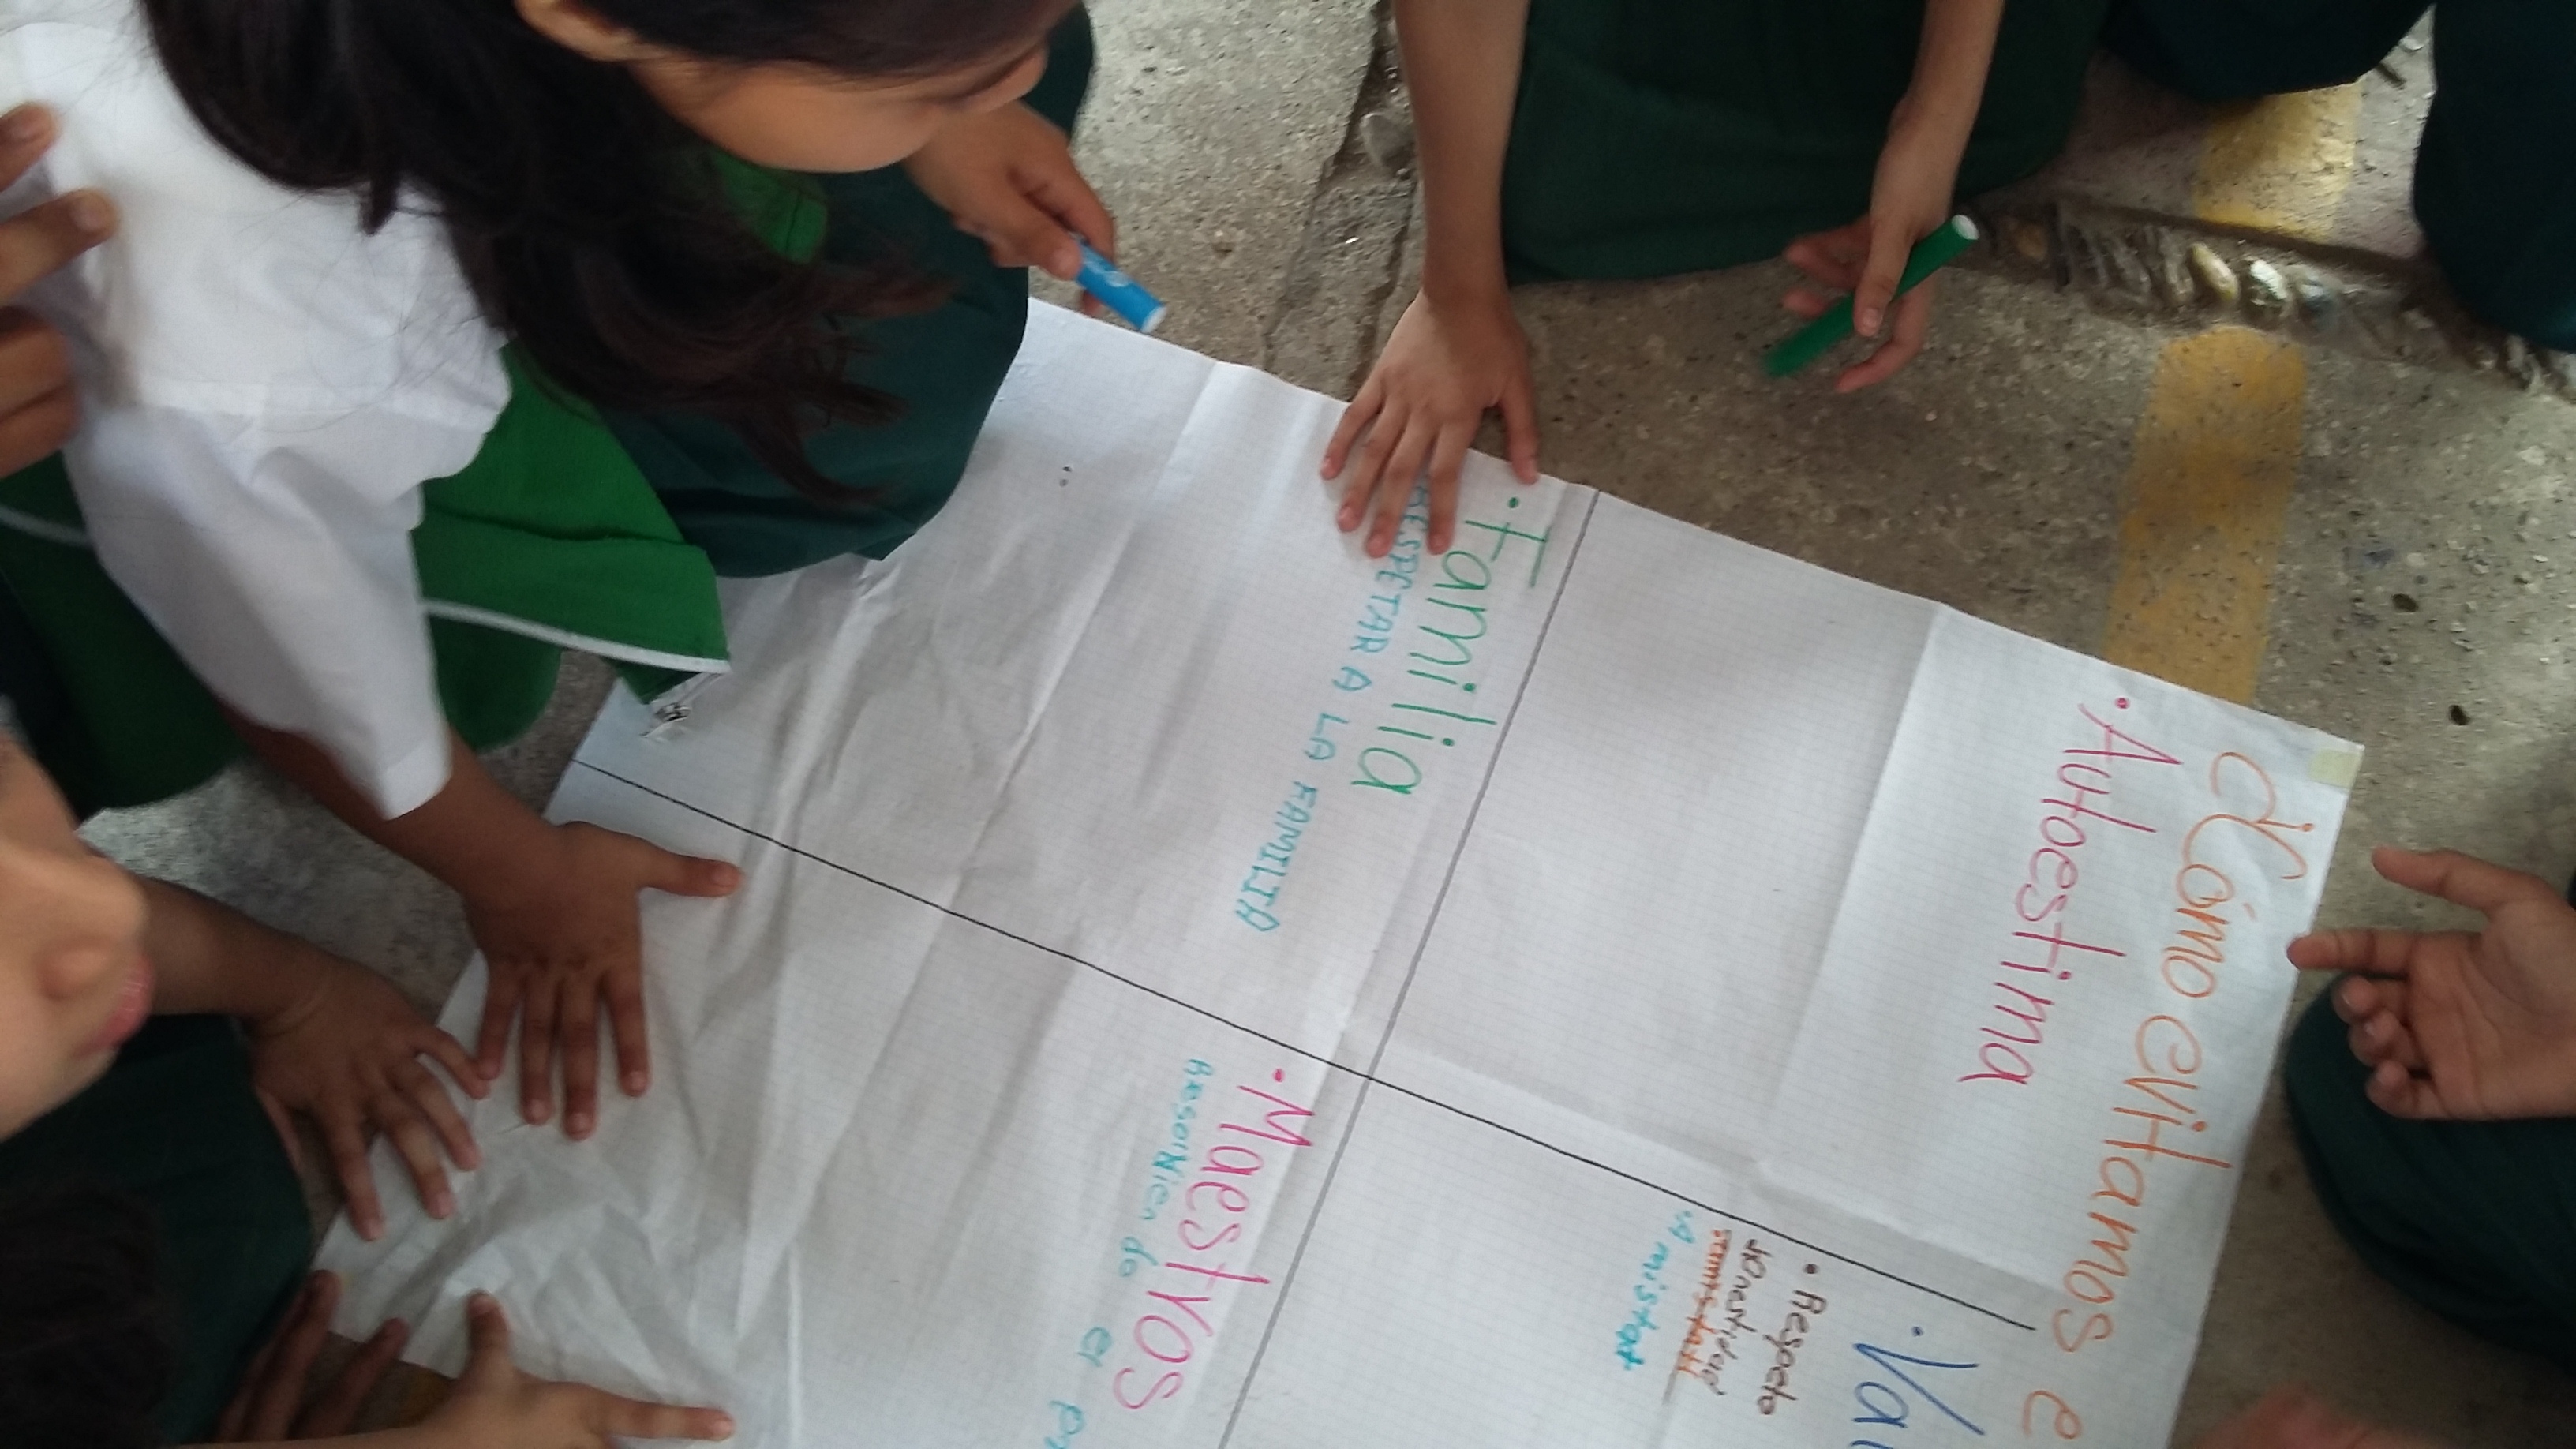 ¿Cómo evitamos e
• Autoestima
• Va
• Respeto
Honestidad
• Amistat
• Familia
RESPETAR A LA FAMILIA
• Maestros